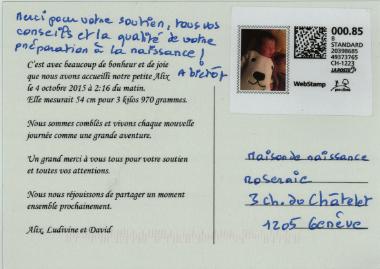 Merci pour votre soutien, tous vos
conseils et la qualité de votre
préparation à la naissance !
A bientôt
C'est avec beaucoup de bonheur et de joie
que nous avons accueilli notre petite Alix,
le 4 octobre 2015 à 2:16 du matin.
Elle mesurait 54 cm pour 3 kilos 970 grammes.
Nous sommes comblés et vivons chaque nouvelle
journée comme une grande aventure.
Un grand merci à vous tous pour votre soutien
et toutes vos attentions.
Nous nous réjouissons de partager un moment
ensemble prochainement.
Alix, Ludivine et David
000.85
B
STANDARD
20398685
49373765
CH-1223
LA POSTE
WebStamp
Maison de naissance
Roseraie
3 Ch. du Châtelet
1205 Genève